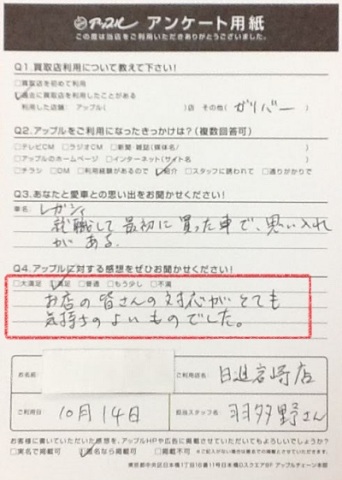 アップル アンケート用紙
この度は当店をご利用いただきありがとうございました。
Q1.買取店利用について教えて下さい!
□買取店を初めて利用
□過去に買取店を利用したことがある
利用した店舗: アップル( )店 その他( ガリバー )
Q2.アップルをご利用になったきっかけは?(複数回答可)
□テレビCM □ラジオCM □新聞・雑誌(媒体名/ )
□アップルのホームページ □インターネット(サイト名 )
□チラシ □DM □利用経験があるので □紹介 □スタッフに誘われて □通りがかりで
Q3.あなたと愛車との思い出をお聞かせください!
車名: レガシィ
就職して最初に買った車で、思い入れ
がある。
Q4.アップルに対する感想をぜひお聞かせください!
□大満足 □満足 □普通 □もう少し □不満
お店の皆さんの対応がとても
気持ちのよいものでした。
お名前
ご利用店名: 日進岩崎店
ご利用日 10月14日
担当スタッフ名: 羽多野さん
お客様に書いていただいた感想を、アップルHPや広告に掲載させていただいてもよろしいでしょうか?
□実名で掲載可 □匿名なら掲載可 □掲載不可
東京都中央区日本橋1丁目16番11号日本橋Dスクエア8F アップルチェーン本部